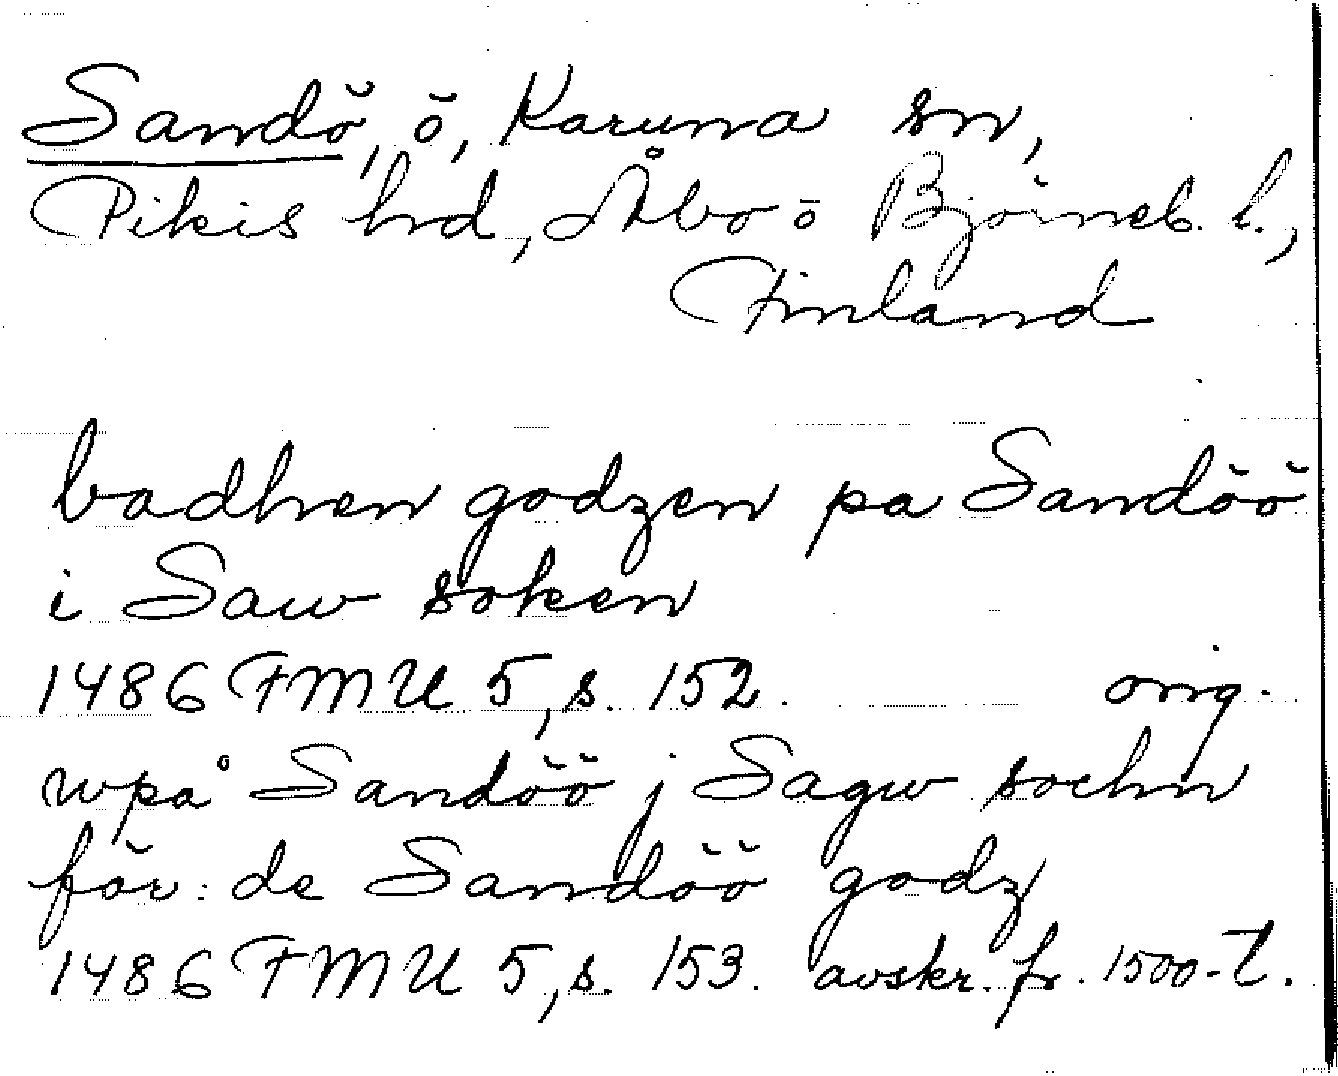 Sandö, ö, Karuna sn,
Pikis hd, Åbo o Björneb. l.,
Finland
badhen godzen pa Sandöö
i Saw soken
1486 FMU 5, s. 152. orig.
wpå Sandöö j Sagw sochn
för: de Sandöö godz
1486 FMU 5, s. 153. avskr. fr. 1500-t.